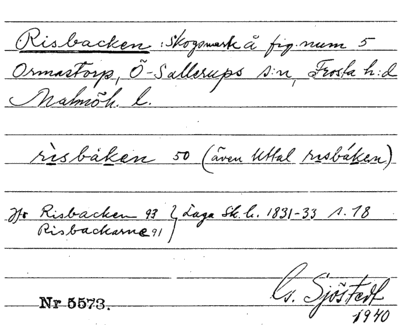 Risbacken : Skogsmark å fig. num 5
Ormastorp, Ö-Sallerups s:n, Frosta h:d
Malmöh. l.
rìsbáken 50 (även uttal rısbáken)
Jfr Risbacken 93 } Laga Sk. h. 1831-33 s. 18
Risbackarne 91
Nr 5573.
Gs. Sjöstedt
1940